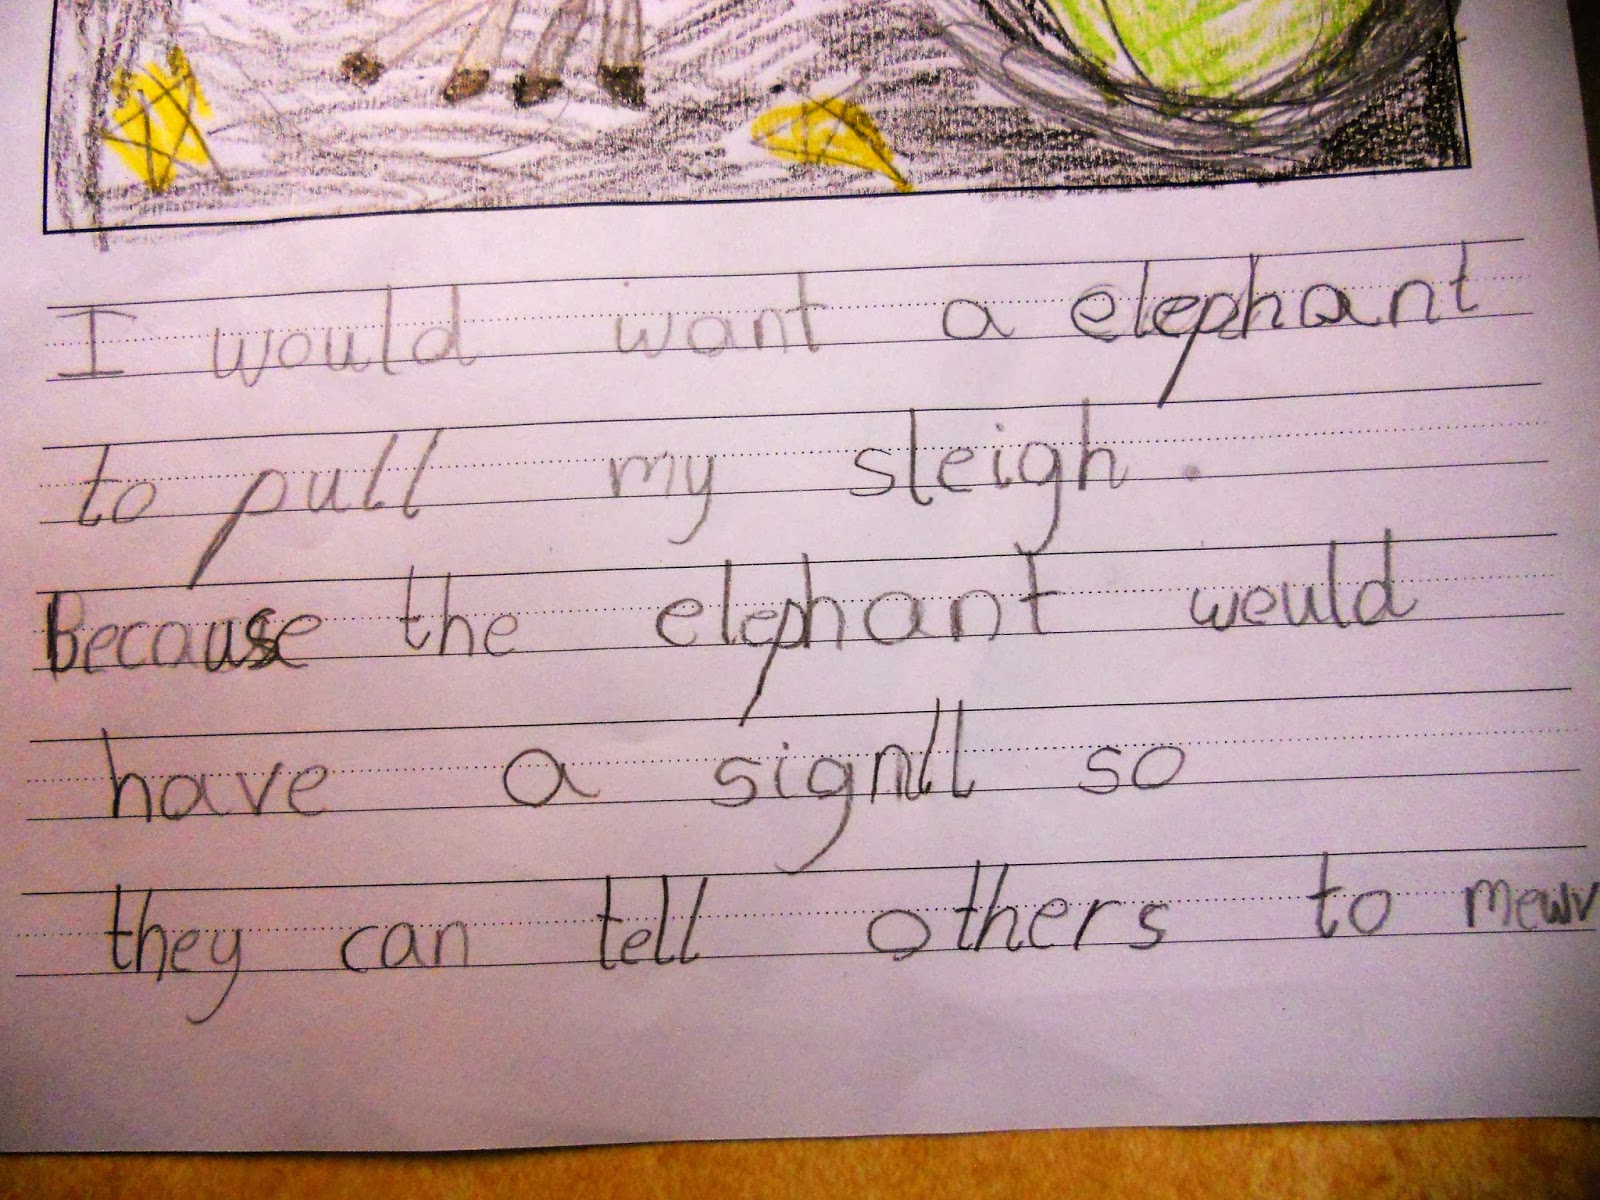 I would want a elephant
to pull my sleigh.
Because the elephant weuld
have a signll so
they can tell others to